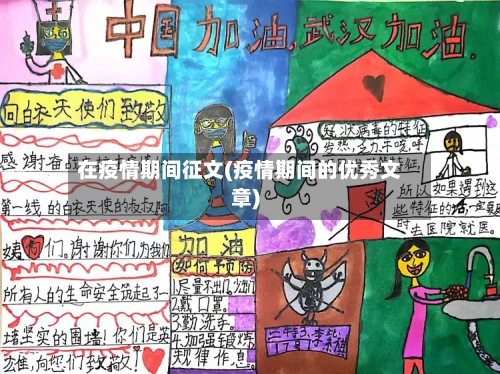 中国加油,武汉加油.
向白衣天使们致敬
感谢奋战在
第一线,的白衣天使的叔叔阿
姨们。谢谢你们,为我们
所有人的生命安全筑起了一
堵坚实的围墙!你们是英
雄,向您们致敬!
在疫情期间征文(疫情期间的优秀文
章)
加油
如何预防
1.尽量不出门
2.戴口罩。
3.勤洗手。
4.加强锻炼
规律作息。
状病毒的特征
发热,乏力,干咳,呼
所以如果遇到这
些特征的话,一定要及
时去医院就医。